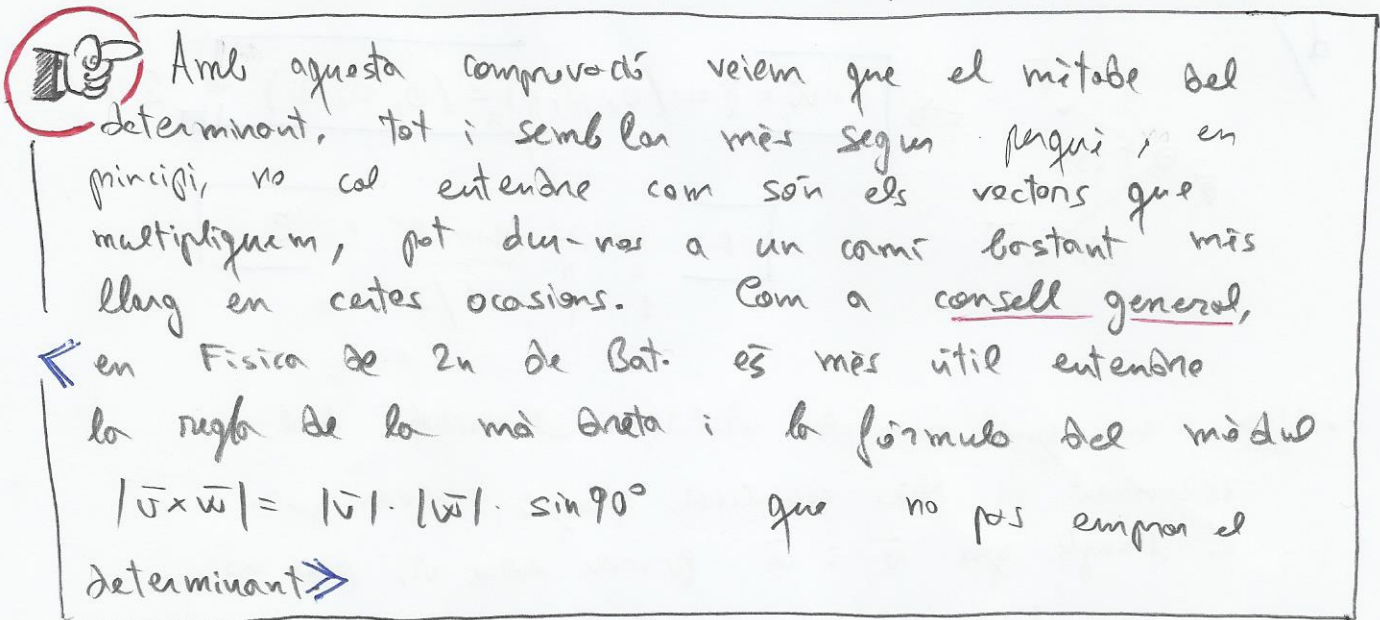 Amb aquesta comprovació veiem que el mètode del
determinant, tot i semblar més segur perquè, en
principi, no cal entendre com són els vectors que
multipliquem, pot dur-nos a un camí bastant més
llarg en certes ocasions. Com a consell general,
« en Física de 2n de Bat. és més útil entendre
la regla de la mà dreta i la fórmula del mòdul
|v̄×w̄| = |v̄|·|w̄|· sin 90° que no pas emprar el
determinant »